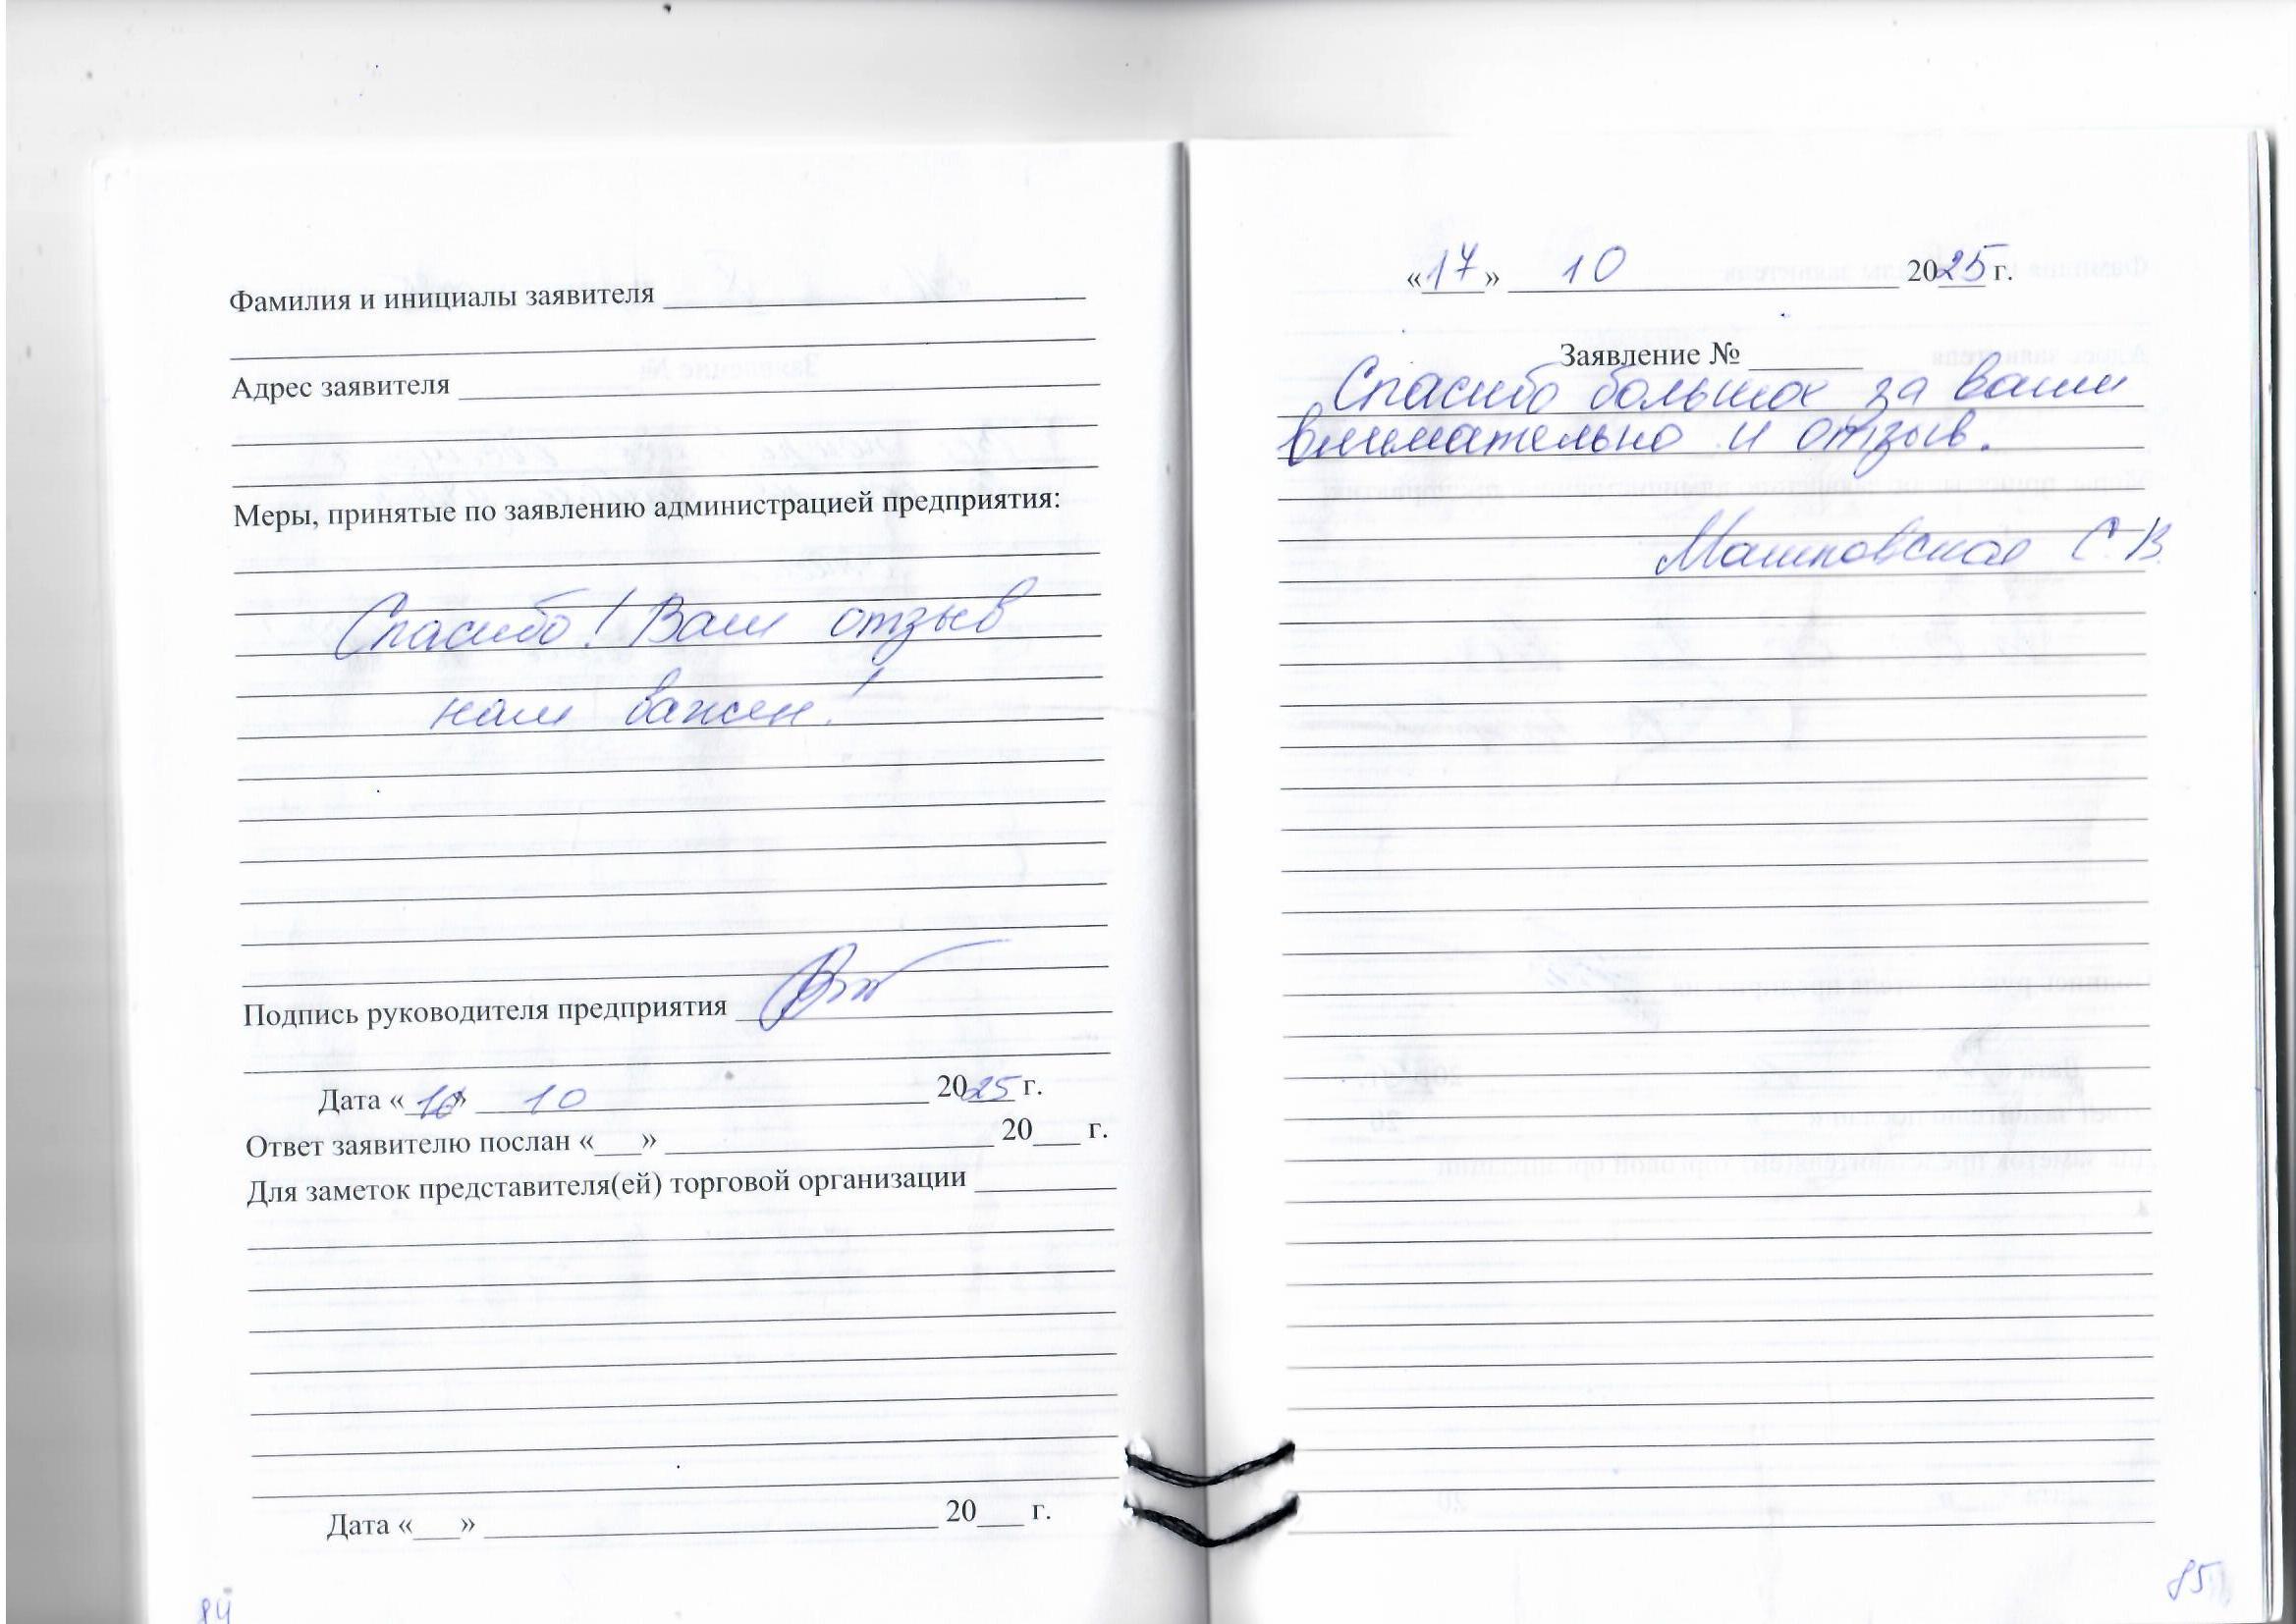 Фамилия и инициалы заявителя
Адрес заявителя
Меры, принятые по заявлению администрацией предприятия:
Спасибо! Ваш отзыв
нам важен!
Подпись руководителя предприятия
Дата «16» 10 2025 г.
Ответ заявителю послан «___» 20___ г.
Для заметок представителя(ей) торговой организации
Дата «___» 20___ г.
84
«17» 10 2025 г.
Заявление №
Спасибо большое за ваши
внимательно и отзыв.
Машковская С В
85